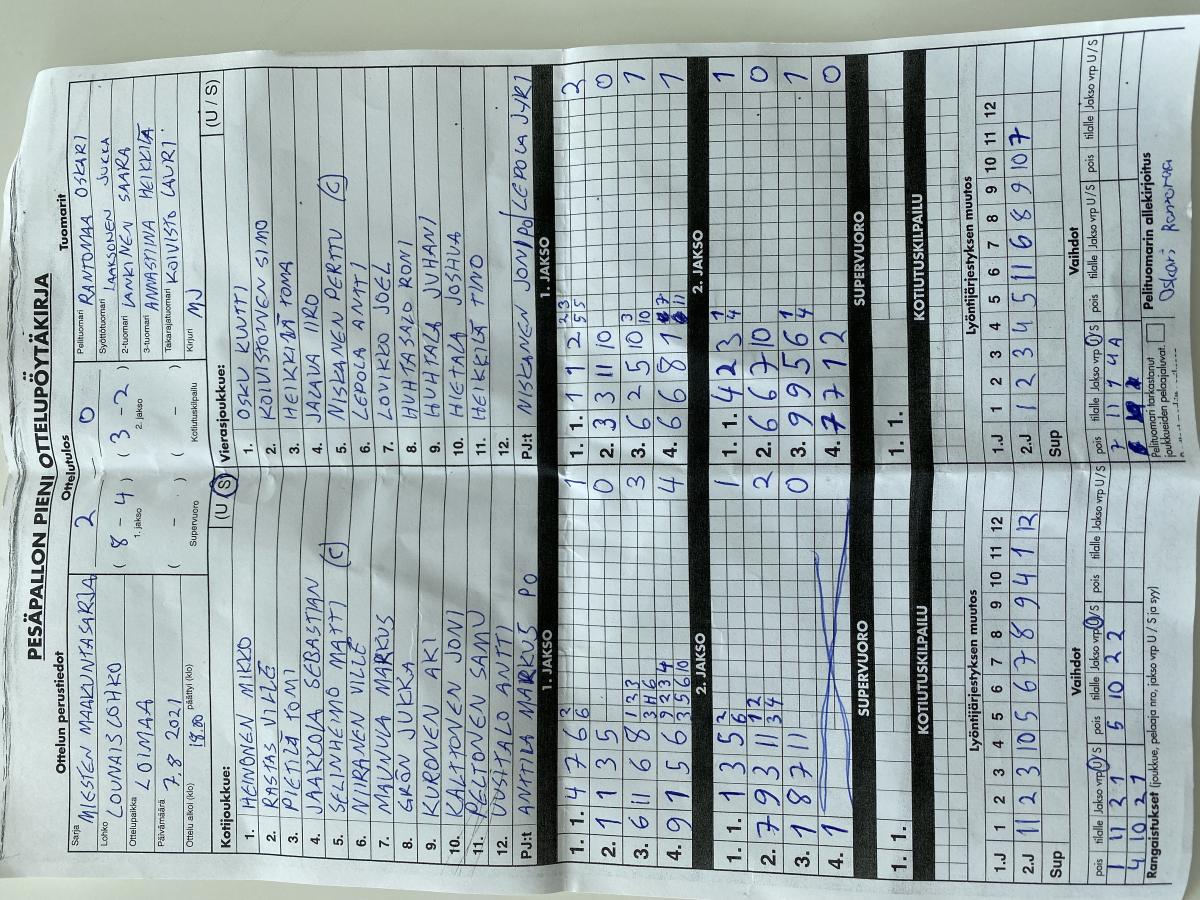 PESÄPALLON PIENI OTTELUPÖYTÄKIRJA
Ottelun perustiedot
Sarja MIESTEN MAAKUNTASARJA
Lohko LOUNAIS LOHKO
Ottelupaikka LOIMAA
Päivämäärä 7.8 2021
Ottelu alkoi (klo) 18.00 päättyi (klo)
Ottelutulos
2 0
( 8 - 4 ) ( 3 - 2 )
1. jakso 2. jakso
( - ) ( - )
Supervuoro Kotiutuskilpailu
Tuomarit
Pelituomari RANTOMAA OSKARI
Syöttötuomari LAAKSONEN JUKKA
2-tuomari LANKINEN SAARA
3-tuomari ANNASTIINA HEIKKILÄ
Takarajatuomari KOIVISTO LAURI
Kirjuri MJ
Kotijoukkue: (U / S)
1. HEINONEN MIKKO
2. RASTAS VILLE
3. PIETILÄ TOMI
4. JAAKOLA SEBASTIAN
5. SELINHEIMO MATTI (C)
6. NIIRANEN VILLE
7. MAUNULA MARKUS
8. GRÖN JUKKA
9. KURONEN AKI
10. KALTIONEN JONI
11. PELTONEN SAMU
12. UUSITALO ANTTI
PJ:t ANTTILA MARKUS PO
Vierasjoukkue: (U / S)
1. OSKU KUUTTI
2. KOIVISTOINEN SIMO
3. HEIKKILÄ TOMA
4. JALAVA IIRO
5. NISKANEN PERTTU (C)
6. LEPOLA ANTTI
7. LOVIKKO JOEL
8. HUHTASALO RONI
9. HUHTALA JUHANI
10. HIETALA JOSHUA
11. HEIKKILÄ TIMO
12.
PJ:t NISKANEN JONI PO/LEPOLA JYRI
1. JAKSO
1. 1. 4 7 6 2 6 1
2. 1 1 3 5 0
3. 6 11 6 8 1 2 3 3 4 6 3
4. 9 1 5 6 9 2 3 4 3 5 6 10 4
2. JAKSO
1. 1. 1 3 5 2 6 1
2. 7 9 3 11 1 2 3 4 2
3. 1 8 7 11 0
4. 1
SUPERVUORO
1. 1.
KOTIUTUSKILPAILU
1. JAKSO
1. 1. 1 1 2 2 3 5 5 2
2. 3 3 11 10 0
3. 6 2 5 10 3 10 1
4. 6 6 8 1 7 11 1
2. JAKSO
1. 1. 4 2 3 1 4 1
2. 6 6 7 10 0
3. 9 9 5 6 1 4 1
4. 7 7 1 2 0
SUPERVUORO
1. 1.
KOTIUTUSKILPAILU
Lyöntijärjestyksen muutos
1.J 1 2 3 4 5 6 7 8 9 10 11 12
2.J 11 2 3 10 5 6 7 8 9 4 1 12
Sup
Vaihdot
pois tilalle Jakso vrp U / S pois tilalle Jakso vrp U / S pois tilalle Jakso vrp U / S
1 11 2 1 5 10 2 2
4 10 2 1
Rangaistukset (joukkue, pelaaja nro, jakso vrp U / S ja syy)
Lyöntijärjestyksen muutos
1.J 1 2 3 4 5 6 7 8 9 10 11 12
2.J 1 2 3 4 5 11 6 8 9 10 7
Sup
Vaihdot
pois tilalle Jakso vrp U / S pois tilalle Jakso vrp U / S pois tilalle Jakso vrp U / S
7 11 1 4A
Pelituomari tarkastanut
joukkueiden pelaajaluvat.
Pelituomarin allekirjoitus
Oskari Rantomaa